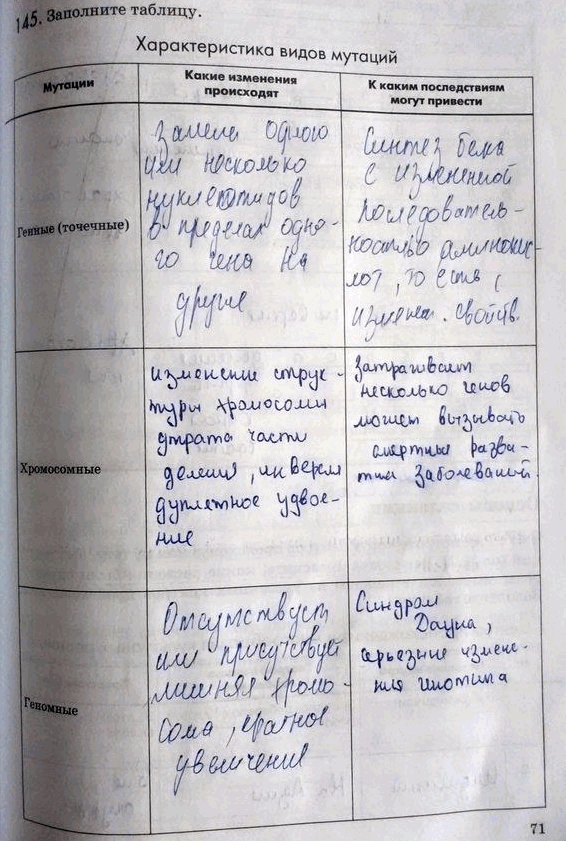 145. Заполните таблицу.
Характеристика видов мутаций
Мутации
Какие изменения
происходят
К каким последствиям
могут привести
Генные (точечные)
замена одного
или несколько
нуклеотидов
в пределах одно-
го гена на
другие
Синтез белка
с измененной
последователь-
ностью аминокис-
лот, то есть с
изменен. свойств.
Хромосомные
изменение струк-
туры хромосомы
утрата части
делеция, инверсия
дуплетное удвое-
ние
затрагивает
несколько генов
может вызывать
смертные разви-
тия заболеваний.
Геномные
Отсутствует
или присутствует
лишняя хромо-
сома, кратное
увеличение
Синдром
Дауна,
серьезные измене-
ния генотипа
71